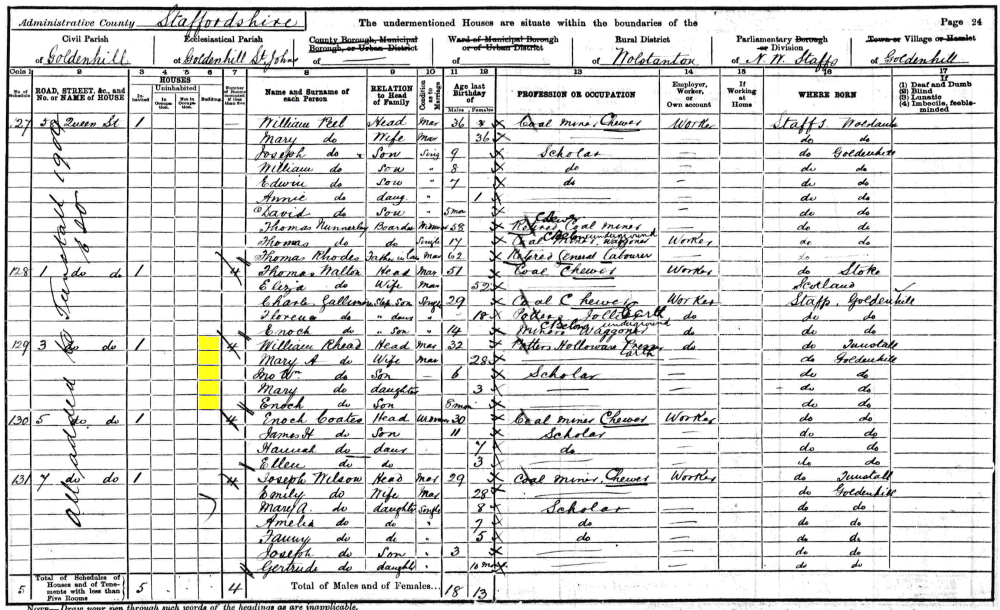 Administrative County Staffordshire The undermentioned Houses are situate within the boundaries of the Page 24
Civil Parish Ecclesiastical Parish County Borough, Municipal Borough, or Urban District Ward of Municipal Borough or of Urban District Rural District Parliamentary Borough or Division Town or Village or Hamlet
of Goldenhill of Goldenhill St Johns of of of Wolstanton of N.W. Staffs of Goldenhill
Cols 1 2 3 4 5 6 7 8 9 10 11 12 13 14 15 16 17
No. of Schedule ROAD, STREET, &c., and No. or NAME of HOUSE HOUSES Inhabited Uninhabited In Occupation. Not in Occupation. Building. Name and Surname of each Person RELATION to Head of Family Condition as to Marriage Age last Birthday of Males Females PROFESSION OR OCCUPATION Employer, Worker, or Own account If Working at Home WHERE BORN (1) Deaf and Dumb (2) Blind (3) Lunatic (4) Imbecile, feeble-minded
127 Queen St 1 William Peel Head Mar 36 Coal miner Hewer Worker Staffs
Mary do Wife Mar 36 — — do do
Joseph do Son Sing 9 Scholar — do Goldenhill
William do Son " 8 do — do do
Edwin do Son " 7 do — do do
Annie do daug " 1 — — do do
David do Son " 5 mo — do do
Thomas Nunnerley Boarder Widower 58 Retired Coal miner — do do
Thomas do do Single 17 Waggoner Worker do do
Thomas Rhodes Father in Law Mar 62 Retired General Labourer — do
128 1 do do 1 4 Thomas Walton Head Mar 51 Coal Hewer Worker do Stoke
Wife Mar 52 — — Scotland
Charles Step Son Single 29 Coal Hewer Worker Staff. Goldenhill
Florence do " daur - 18 Potters do do do
Enoch do " Son " 14 Miners Waggoner do do do
129 3 do do 1 4 William Rhead Head Mar 32 Potters Holloware Presser do do Tunstall
Mary A do Wife Mar 28 — do Goldenhill
Jno Wm do Son — 6 Scholar do do
Mary do daughter 3 — do do
Enoch do Son 8 mo — do do
130 5 do do 1 4 Enoch Coates Head Widower 30 Coal miner Hewer Worker do do
James H do Son 11 Scholar — do do
Hannah do daur 7 do — do do
Ellen do do 3 — — do do
131 7 do do 1 4 Joseph Wilson Head Mar 29 Coal miner Hewer Worker do Tunstall
Emily do Wife Mar 28 — — do Goldenhill
Mary A. do daughter Single 8 Scholar — do do
Amelia do do " 7 do — do do
Fanny do do " 5 do — do do
Joseph do Son " 3 — do do
Gertrude do daught " — do do
5 Total of Schedules of Houses and of Tenements with less than Five Rooms 5 4 Total of Males and of Females... 18 13
NOTE—Draw your pen through such words of the headings as are inapplicable.